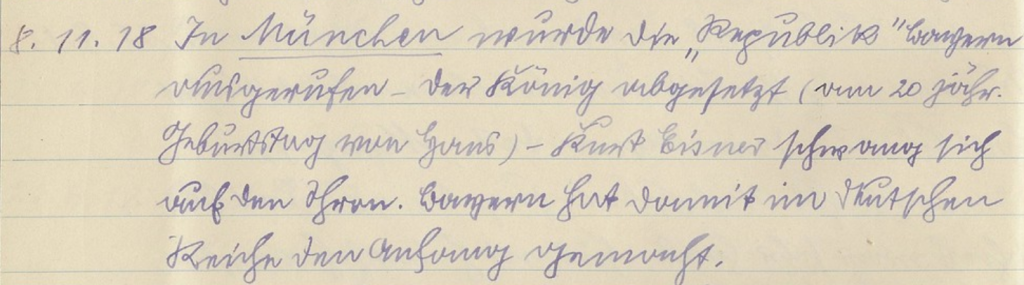 8. 11. 18 In München wurde die „Republik" Bayern
ausgerufen – Der König abgesetzt (am 20 jähr.
Geburtstag von Hans) – Kurt Eisner schwang sich
auf den Thron. Bayern hat damit im Deutschen
Reiche den Anfang gemacht.